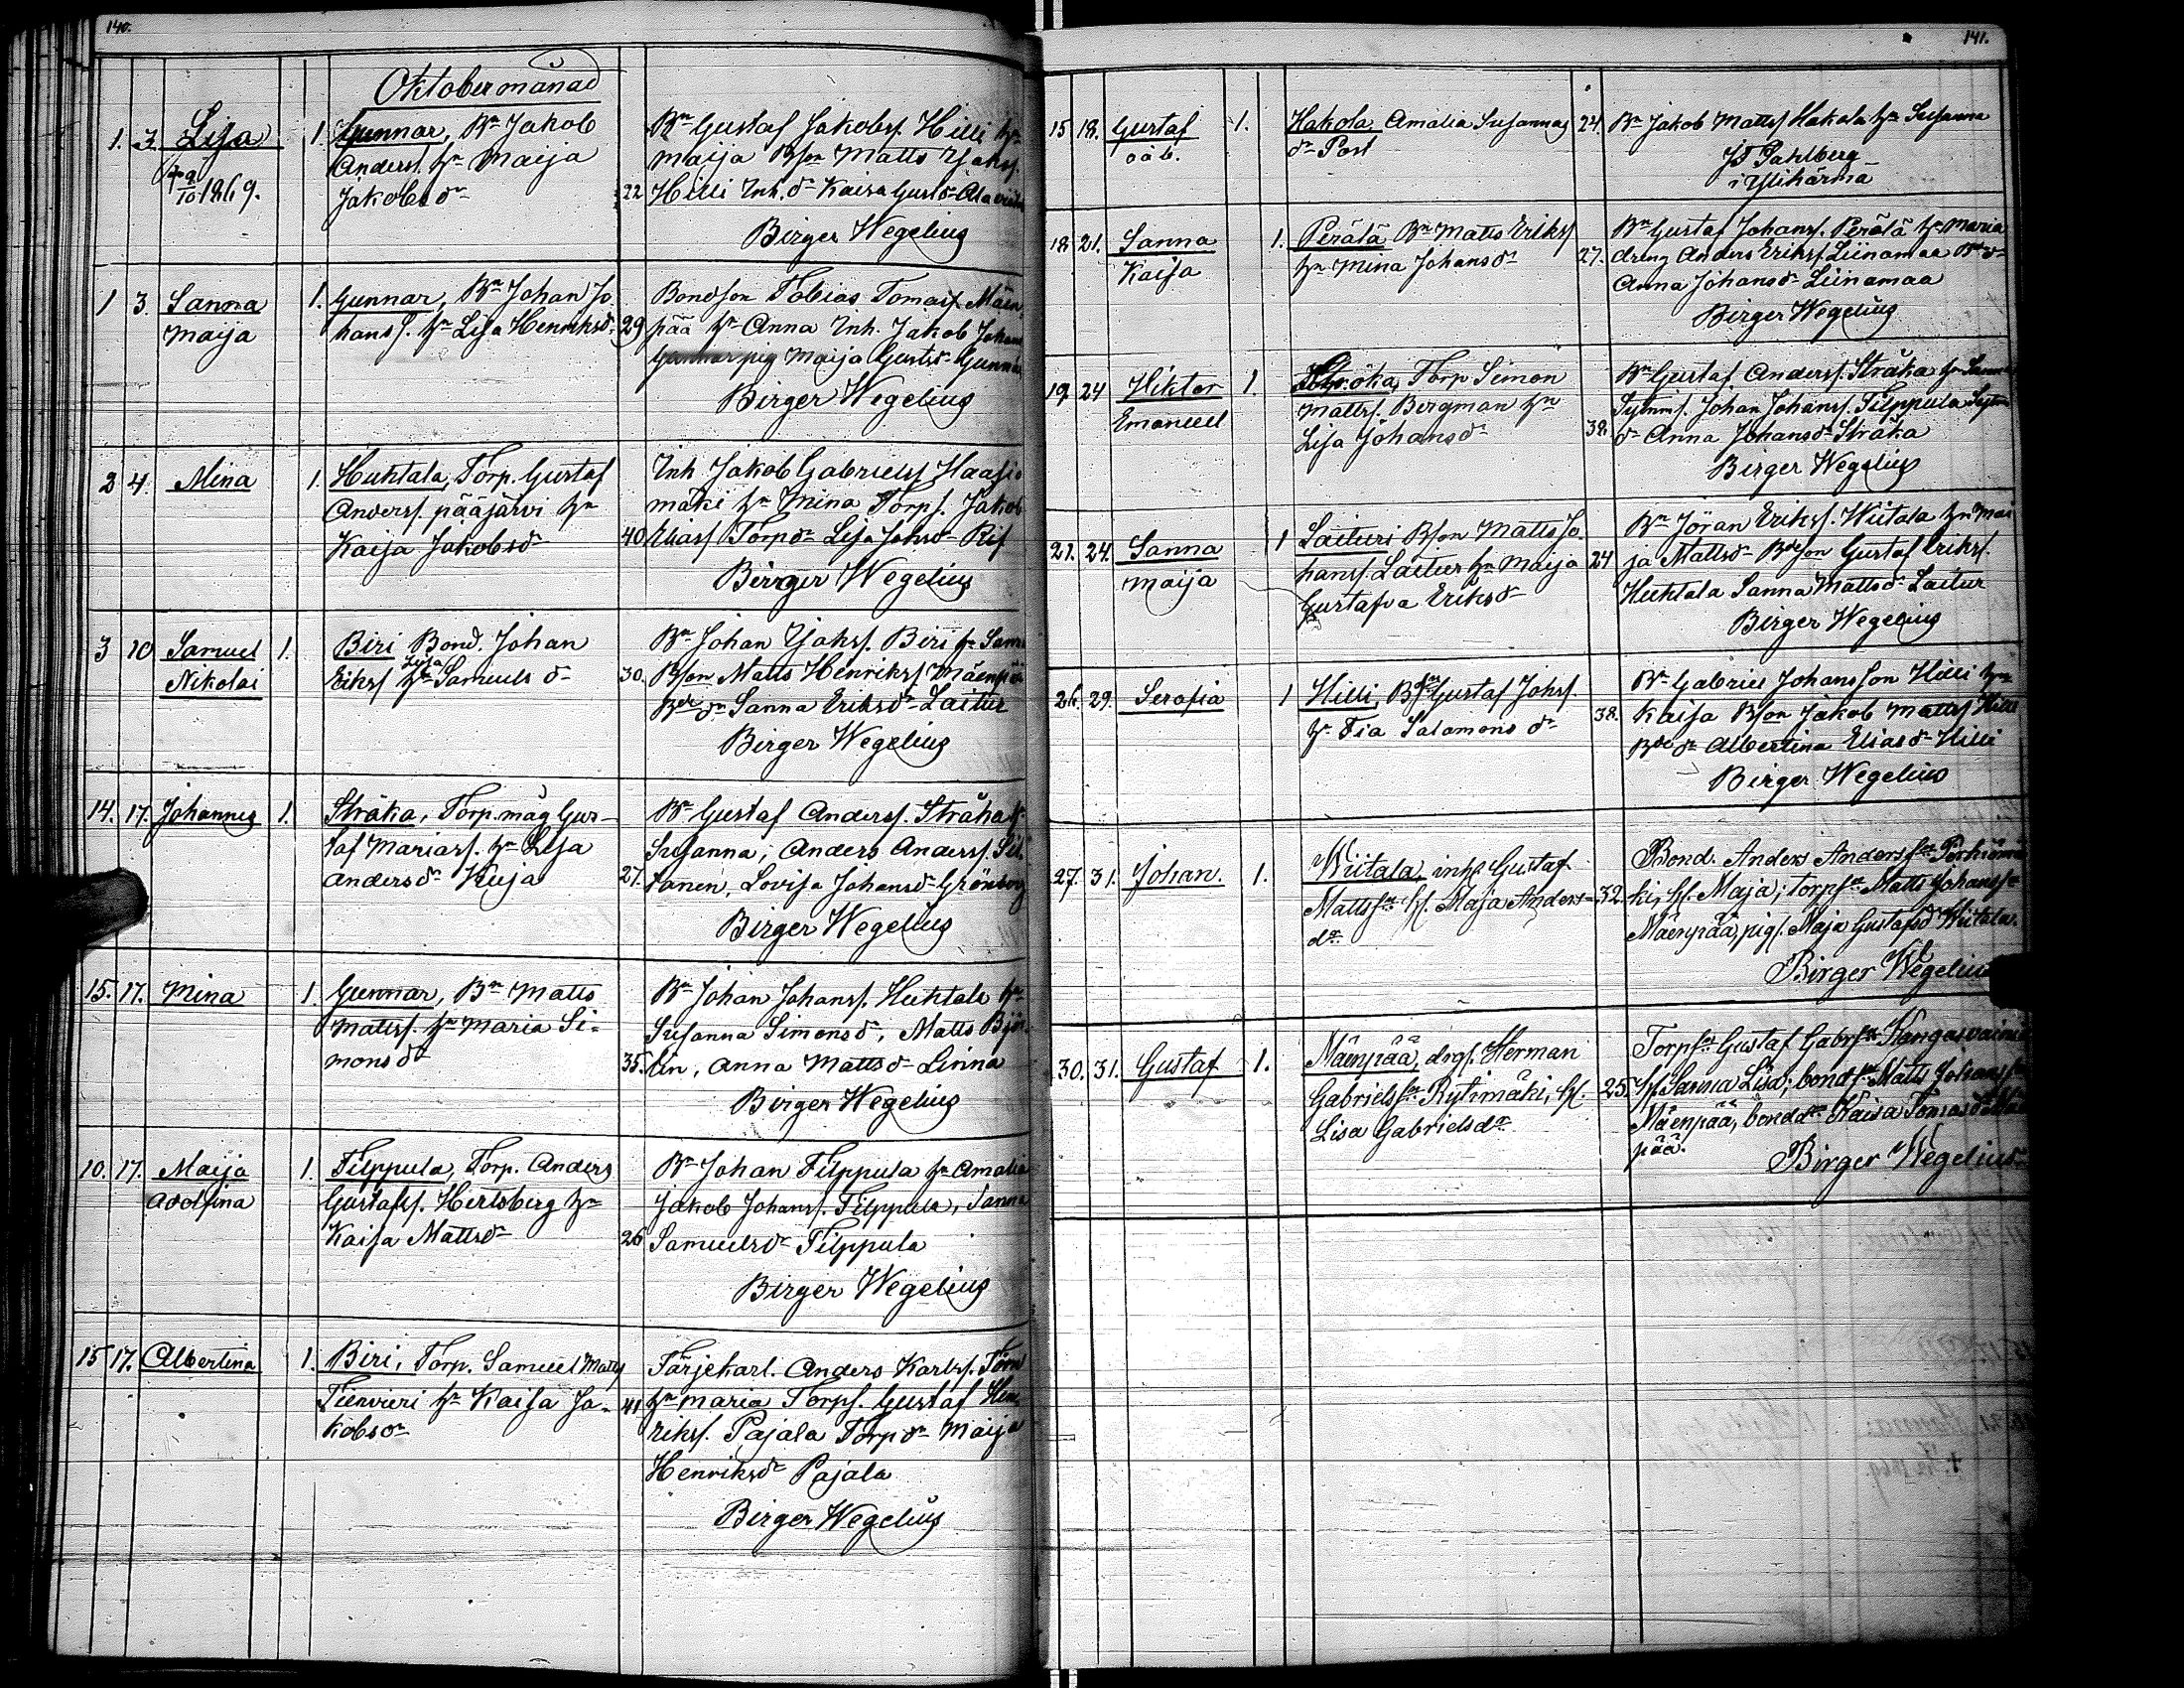 140.
Oktober månad
1. 3. Lisa 1. Gunnar, Bn Jakob
Anderss. hn Maija
Jakobsdr
1869.
22 Bn Gustaf Jakobss. Hilli hn
Maija Bson Matts
Hilli Inh. dr Kaisa Gustdr
Birger Wegelius
1 3. Sanna Maija 1. Gunnar, Bn Johan Jo-
hanss. hn Lisa Henriksdr
29 Bondson Tobias Tomass. Mäen-
pää hn Anna Inh. Jakob Johans
Gunnar pig Maija Gustdr Gunnar
Birger Wegelius
2 4. Mina 1. Huhtala, Torp. Gustaf
Anderss. Pääjärvi hn
Kaija Jakobsdr
40 Inh Jakob Gabrielss. Haapio
mäki hn Mina Torps. Jakob
Eliass Torpdr Lisa Johsdr
Birger Wegelius
3 10 Samuel Nikolai 1. Biri Bond. Johan
Erikss hn Lisa Samuelsdr
30. Bn Johan Johss. Biri hn Sanna
Bson Matts Henrikss Mäenpää
Bdedr Sanna Eriksdr Laituri
Birger Wegelius
14. 17. Johannes 1. Stråka, Torp. måg Gus-
taf Mariass. hn Lisa
Andersdr Kuja
27. Bn Gustaf Anderss. Stråka hn
Susanna; Anders Anderss. Sil-
tanen, Lovisa Johansdr Grönberg
Birger Wegelius
15. 17. Mina 1 Gunnar, Bn Matts
Mattss. hn Maria Si-
monsdr
35. Bn Johan Johanss. Huhtala hn
Susanna Simonsdr, Matts Björ-
lin, Anna Mattsdr Linna
Birger Wegelius
10. 17. Maija Adolfina 1. Filppula, Torp. Anders
Gustafss. Hertsberg hn
Kaisa Mattsdr
26 Bn Johan Filppula hn Amalia
Jakob Johanss. Filppula, Sanna
Samuelsdr Filppula
Birger Wegelius
15 17. Albertina 1. Biri, Torp. Samuel Matts
Tienvieri hn Kaisa Ja-
kobsdr
41 Färjekarl. Anders Karlss. Törn
hn Maria Torps. Gustaf Hen-
rikss. Pajala Torpdr Maija
Henriksdr Pajala
Birger Wegelius
141.
15 18. Gustaf oäb. 1. Hakola Amalia Susanna
dr Post
24. Bn Jakob Mattss Hakola hn Susanna
Js Pahlberg
i Ylihärmä
18 21. Sanna Kaisa 1. Perälä Bn Matts Erikss
hn Mina Johansdr
27. Bn Gustaf Johanss. Perälä hn Maria
dreng Anders Erikss Liinamaa Bdedr
Anna Johansdr Liinamaa
Birger Wegelius
19 24 Hiktor Emanuel 1. Torp Simon
Mattss. Bergman hn
Lisa Johansdr
38 Bn Gustaf Anderss. Stråka hn Sanna
Sytnns. Johan Johanss. Filppula Sytn
dr Anna Johansdr Stråka
Birger Wegelius
21. 24. Sanna Maija 1 Laituri Bson Matts Jo-
hanss. Laituri hn Maija
Gustafva Eriksdr
24 Bn Jöran Erikss. Wiitala hn Mai
ja Mattsdr Bdeson Gustaf Erikss.
Huhtala Sanna Mattsdr Laitur
Birger Wegelius
26. 29. Serafia 1 Hilli, Bson Gustaf Johss.
hn Fia Salomonsdr
38. Bn Gabriel Johansson Hilli hn
Kaisa Bson Jakob Mattss Hilli
Bdedr Albertina Eliasdr Hilli
Birger Wegelius
27. 31. Johan. 1. Wiitala, inhs Gustaf
Mattssn h. Maja Anders-
dr.
32. Bond. Anders Anderssn Porkiomä-
ki, h. Maja; torpsn Matts Johanssn
Mäenpää, pig. Maja Gustafsd Wiitala.
Birger Wegelius
30. 31. Gustaf 1. Mäenpää, drg. Herman
Gabrielssn. Rytimäki, h.
Lisa Gabrielsdr
25. Torpsn Gustaf Gabrssn Kangasvainio
h. Sanna Lisa; bondsn Matts Johanssn
Mäenpää, bonddr Kaisa Tomasd Mäen-
pää.
Birger Wegelius